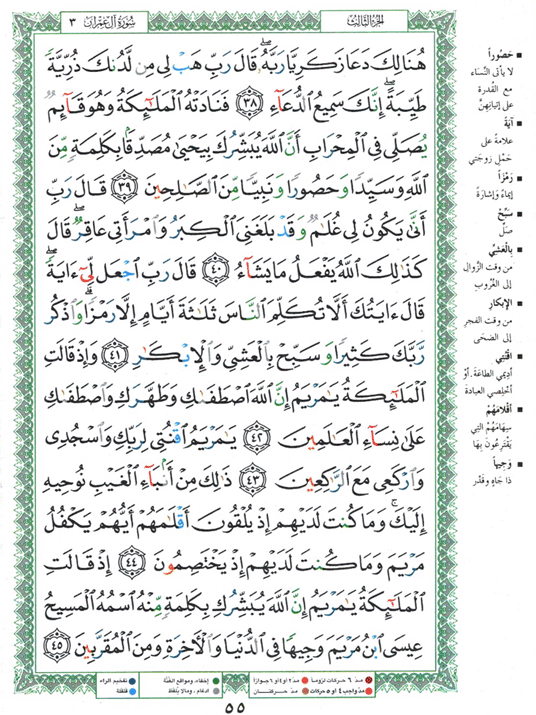 سُورَةُ آلِ عِمْرَان ٣
الجزء الثالث
هُنَالِكَ دَعَا زَكَرِيَّا رَبَّهُۥۖ قَالَ رَبِّ هَبْ لِى مِن لَّدُنكَ ذُرِّيَّةً
طَيِّبَةًۖ إِنَّكَ سَمِيعُ ٱلدُّعَآءِ ٣٨ فَنَادَتْهُ ٱلْمَلَٰٓئِكَةُ وَهُوَ قَآئِمٌ
يُصَلِّى فِى ٱلْمِحْرَابِ أَنَّ ٱللَّهَ يُبَشِّرُكَ بِيَحْيَىٰ مُصَدِّقًۢا بِكَلِمَةٍ مِّنَ
ٱللَّهِ وَسَيِّدًا وَحَصُورًا وَنَبِيًّا مِّنَ ٱلصَّٰلِحِينَ ٣٩ قَالَ رَبِّ
أَنَّىٰ يَكُونُ لِى غُلَٰمٌ وَقَدْ بَلَغَنِىَ ٱلْكِبَرُ وَٱمْرَأَتِى عَاقِرٌۖ قَالَ
كَذَٰلِكَ ٱللَّهُ يَفْعَلُ مَا يَشَآءُ ٤٠ قَالَ رَبِّ ٱجْعَل لِّىٓ ءَايَةًۖ
قَالَ ءَايَتُكَ أَلَّا تُكَلِّمَ ٱلنَّاسَ ثَلَٰثَةَ أَيَّامٍ إِلَّا رَمْزًاۗ وَٱذْكُر
رَّبَّكَ كَثِيرًا وَسَبِّحْ بِٱلْعَشِىِّ وَٱلْإِبْكَٰرِ ٤١ وَإِذْ قَالَتِ
ٱلْمَلَٰٓئِكَةُ يَٰمَرْيَمُ إِنَّ ٱللَّهَ ٱصْطَفَىٰكِ وَطَهَّرَكِ وَٱصْطَفَىٰكِ
عَلَىٰ نِسَآءِ ٱلْعَٰلَمِينَ ٤٢ يَٰمَرْيَمُ ٱقْنُتِى لِرَبِّكِ وَٱسْجُدِى
وَٱرْكَعِى مَعَ ٱلرَّٰكِعِينَ ٤٣ ذَٰلِكَ مِنْ أَنۢبَآءِ ٱلْغَيْبِ نُوحِيهِ
إِلَيْكَۚ وَمَا كُنتَ لَدَيْهِمْ إِذْ يُلْقُونَ أَقْلَٰمَهُمْ أَيُّهُمْ يَكْفُلُ
مَرْيَمَ وَمَا كُنتَ لَدَيْهِمْ إِذْ يَخْتَصِمُونَ ٤٤ إِذْ قَالَتِ
ٱلْمَلَٰٓئِكَةُ يَٰمَرْيَمُ إِنَّ ٱللَّهَ يُبَشِّرُكِ بِكَلِمَةٍ مِّنْهُ ٱسْمُهُ ٱلْمَسِيحُ
عِيسَى ٱبْنُ مَرْيَمَ وَجِيهًا فِى ٱلدُّنْيَا وَٱلْءَاخِرَةِ وَمِنَ ٱلْمُقَرَّبِينَ ٤٥
■ حَصُوراً
لا يأتي النِّساء
مع القُدرة
على إتيانِهِنّ
■ آيَةً
علامةً على
حَمْلِ زوجَتي
■ رَمْزاً
إيماءً وإشارةً
■ سَبِّحْ
صلِّ
■ بِالعَشِيِّ
من وقت الزَّوال
إلى الغُروب
■ الإبكار
من وقت الفجرِ
إلى الضحَى
■ اقْنُتِي
أديمي الطاعة. أو
أخلصي العبادة
■ أقْلامَهُمْ
سِهامَهُمْ التِي
يَقْتَرِعُونَ بِها
■ وَجِيهاً
ذا جَاهٍ وقَدْر
مدّ ٦ حركات لزوماً
مدّ ٢ أو ٤ أو ٦ جوازاً
إخفاء، ومواقع الغُنَّة
تفخيم الراء
مدّ واجب ٤ أو ٥ حركات
مدّ حركتان
ادغام، وما لا يُلفَظ
قلقلة
٥٥